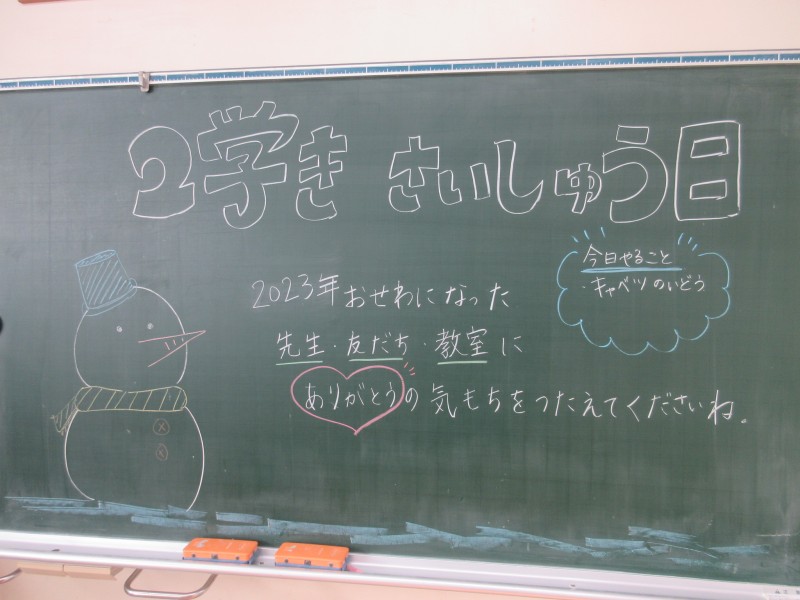 2学き さいしゅう日
今日やること
・キャベツのいどう
2023年おせわになった
先生・友だち・教室に
ありがとうの気もちをつたえてくださいね。